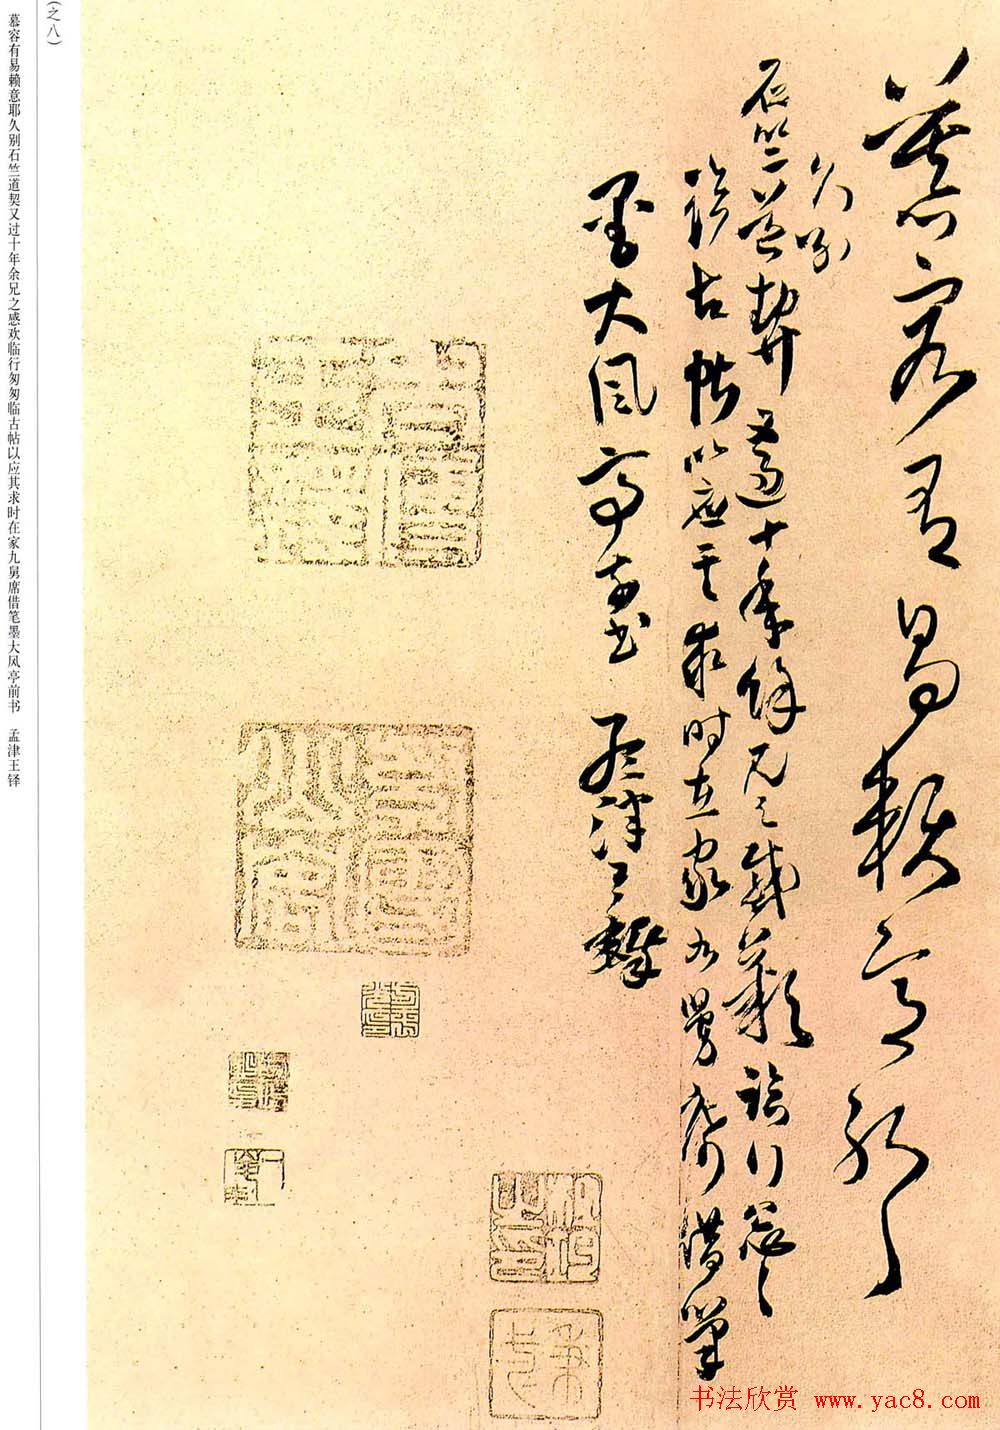 慕容有易賴意耶
久別
石竺道契又過十年餘兄之感歡臨行匆匆
臨古帖以應其求時在家九舅席借筆
墨大風亭前書 孟津王鐸
(之八)
慕容有易赖意耶久别石竺道契又过十年余兄之感欢临行匆匆临古帖以应其求时在家九舅席借笔墨大风亭前书 孟津王铎
书法欣赏 www.yac8.com